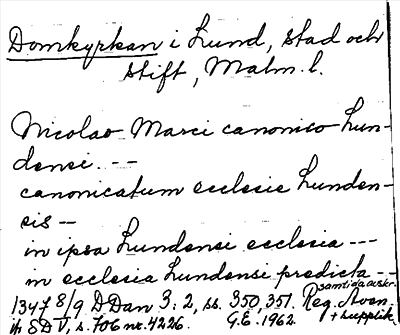 Domkyrkan i Lund, stad och
stift, Malm. l.
Nicolao Marci canonico Lun-
densi. --
canonicatum ecclesie Lunden-
sis --
in ipsa Lundensi ecclesia ---
in ecclesia Lundensi predicta --
samtida avskr.
1347 8/9 DDan 3:2, ss. 350, 351. Reg. Aven.
+ supplik
th SD V, s. 706 nr. 4226. G.E. 1962.